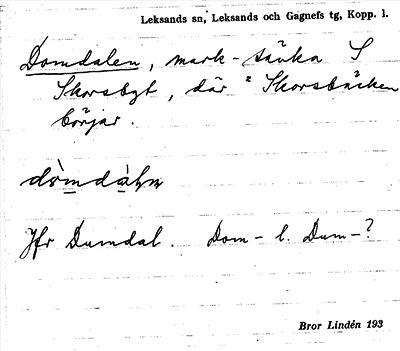 Leksands sn, Leksands och Gagnefs tg, Kopp. l.
Domdalen, mark-sänka S
Skorsbyt, där "Skorsbäcken
börjar.
dòmdàḷn
Jfr Dumdal. Dom- l. Dum-?
Bror Lindén 193